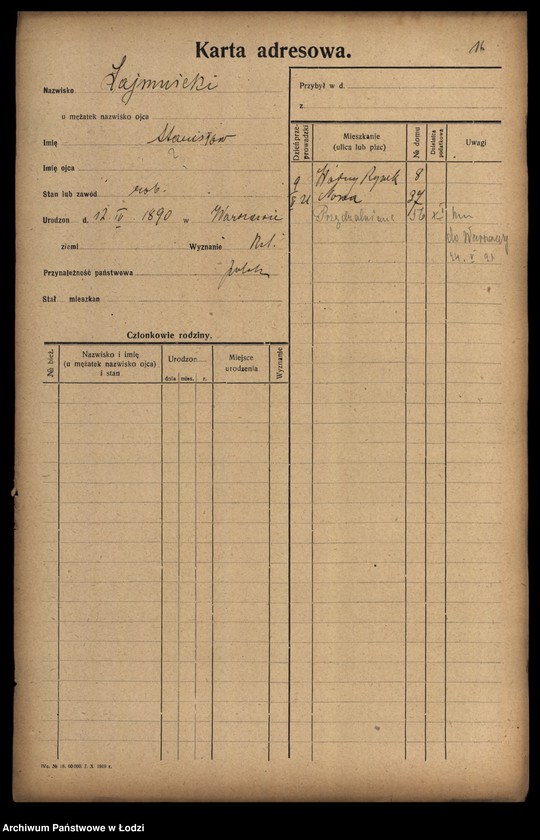 Karta adresowa.
16
Nazwisko
u mężatek nazwisko ojca
Imię Stanisław
?
Imię ojca
Stan lub zawód rob.
Urodzon d. 12 IV 1890 w Warszawie
ziemi Wyznanie
Przynależność państwowa polsk
Stał mieszkan
Przybył w d.
z
Dzień przeprowadzki
Mieszkanie
(ulica lub plac)
№ domu
Dzielnica podatkowa
Uwagi
9 Wodny Rynek 8
II 21 Nowa 37
Przędzalniana 56 XI
do Warszawy
Członkowie rodziny.
№ bież.
Nazwisko i imię
(u mężatek nazwisko ojca)
i stan
Urodzon
dnia mies. r.
Miejsce
urodzenia
Wyznanie
Archiwum Państwowe w Łodzi